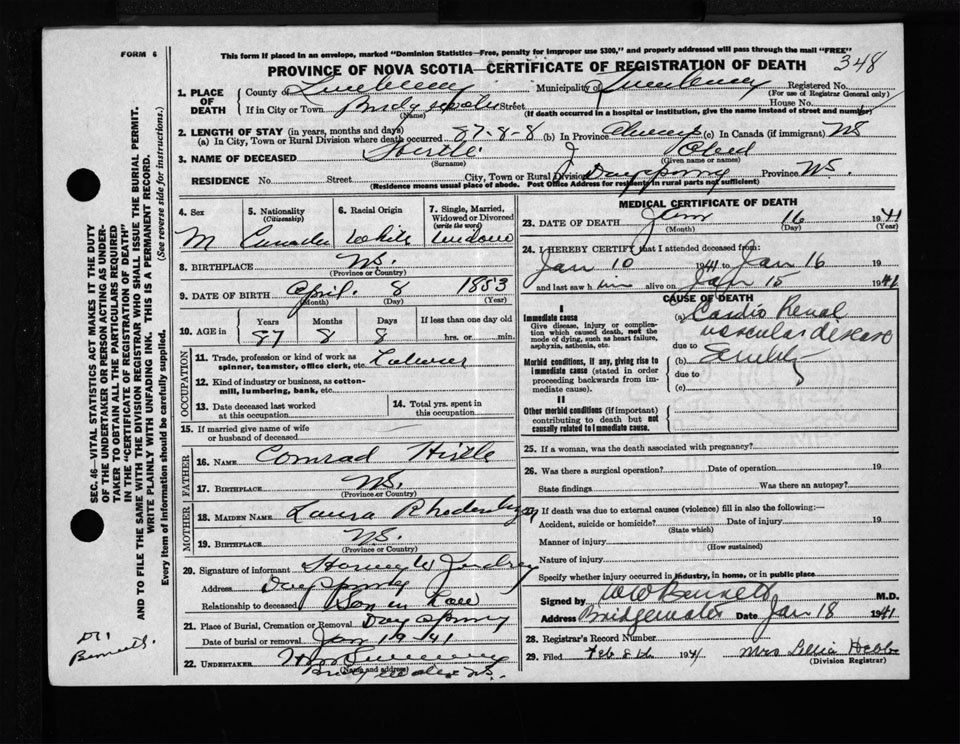 FORM 6
This form if placed in an envelope, marked "Dominion Statistics—Free, penalty for improper use $300," and properly addressed will pass through the mail "FREE"
PROVINCE OF NOVA SCOTIA—CERTIFICATE OF REGISTRATION OF DEATH 348
1. PLACE OF DEATH
County of Lunenburg Municipality of Lunenburg Registered No.
(For use of Registrar General only)
If in City or Town Bridgewater Street House No.
(Name) (If death occurred in a hospital or institution, give the name instead of street and number)
2. LENGTH OF STAY (in years, months and days)
(a) In City, Town or Rural Division where death occurred 87-8-8 (b) In Province Always (c) In Canada (if immigrant) NS
3. NAME OF DECEASED Hirtle J
(Surname) (Given name or names)
RESIDENCE No. Street City, Town or Rural Division Dayspring Province N.S.
(Residence means usual place of abode. Post Office Address for residents in rural parts not sufficient)
4. Sex 5. Nationality (Citizenship) 6. Racial Origin 7. Single, Married, Widowed or Divorced (write the word)
M Canada White
8. BIRTHPLACE N.S.
(Province or Country)
9. DATE OF BIRTH April 8 1853
(Month) (Day) (Year)
10. AGE in Years Months Days If less than one day old
87 8 8 hrs. or min.
OCCUPATION
11. Trade, profession or kind of work as spinner, teamster, office clerk, etc. Labourer
12. Kind of industry or business, as cotton-mill, lumbering, bank, etc.
13. Date deceased last worked at this occupation
14. Total yrs. spent in this occupation
15. If married give name of wife or husband of deceased
FATHER
16. NAME Comrad Hirtle
17. BIRTHPLACE N.S.
(Province or Country)
MOTHER
18. MAIDEN NAME Laura Rhodenhizer
19. BIRTHPLACE N.S.
(Province or Country)
20. Signature of informant W
Address Dayspring
Relationship to deceased Son in Law
21. Place of Burial, Cremation or Removal Dayspring
Date of burial or removal Jan 19 41
22. UNDERTAKER
(Name and address)
Bridgewater N.S.
MEDICAL CERTIFICATE OF DEATH
23. DATE OF DEATH Jan 16 1941
(Month) (Day) (Year)
24. I HEREBY CERTIFY that I attended deceased from:
Jan 10 1941 to Jan 16 19
and last saw him alive on Jan 15 1941
CAUSE OF DEATH
I
Immediate cause
Give disease, injury or complication which caused death, not the mode of dying, such as heart failure, asphyxia, asthenia, etc.
(a) Cardio Renal
vascular disease
due to
Morbid conditions, if any, giving rise to immediate cause (stated in order proceeding backwards from immediate cause).
(b) Senility
due to
(c)
II
Other morbid conditions (if important) contributing to death but not causally related to immediate cause.
25. If a woman, was the death associated with pregnancy?
26. Was there a surgical operation? Date of operation 19
State findings Was there an autopsy?
27. If death was due to external causes (violence) fill in also the following:—
Accident, suicide or homicide? Date of injury 19
(State which)
Manner of injury
(How sustained)
Nature of injury
Specify whether injury occurred in industry, in home, or in public place
Signed by W W Bennett M.D.
Address Bridgewater Date Jan 18 1941
28. Registrar's Record Number
29. Filed Feb 8th 1941 Mrs Lellia Hebb
(Division Registrar)
SEC. 46—VITAL STATISTICS ACT MAKES IT THE DUTY
OF THE UNDERTAKER OR PERSON ACTING AS UNDER-
TAKER TO OBTAIN ALL THE PARTICULARS REQUIRED
IN THE "CERTIFICATE OF REGISTRATION OF DEATH"
AND TO FILE THE SAME WITH THE DIVISION REGISTRAR WHO SHALL ISSUE THE BURIAL PERMIT.
WRITE PLAINLY WITH UNFADING INK. THIS IS A PERMANENT RECORD.
Every item of information should be carefully supplied. (See reverse side for instructions.)
Dr.
Bennett